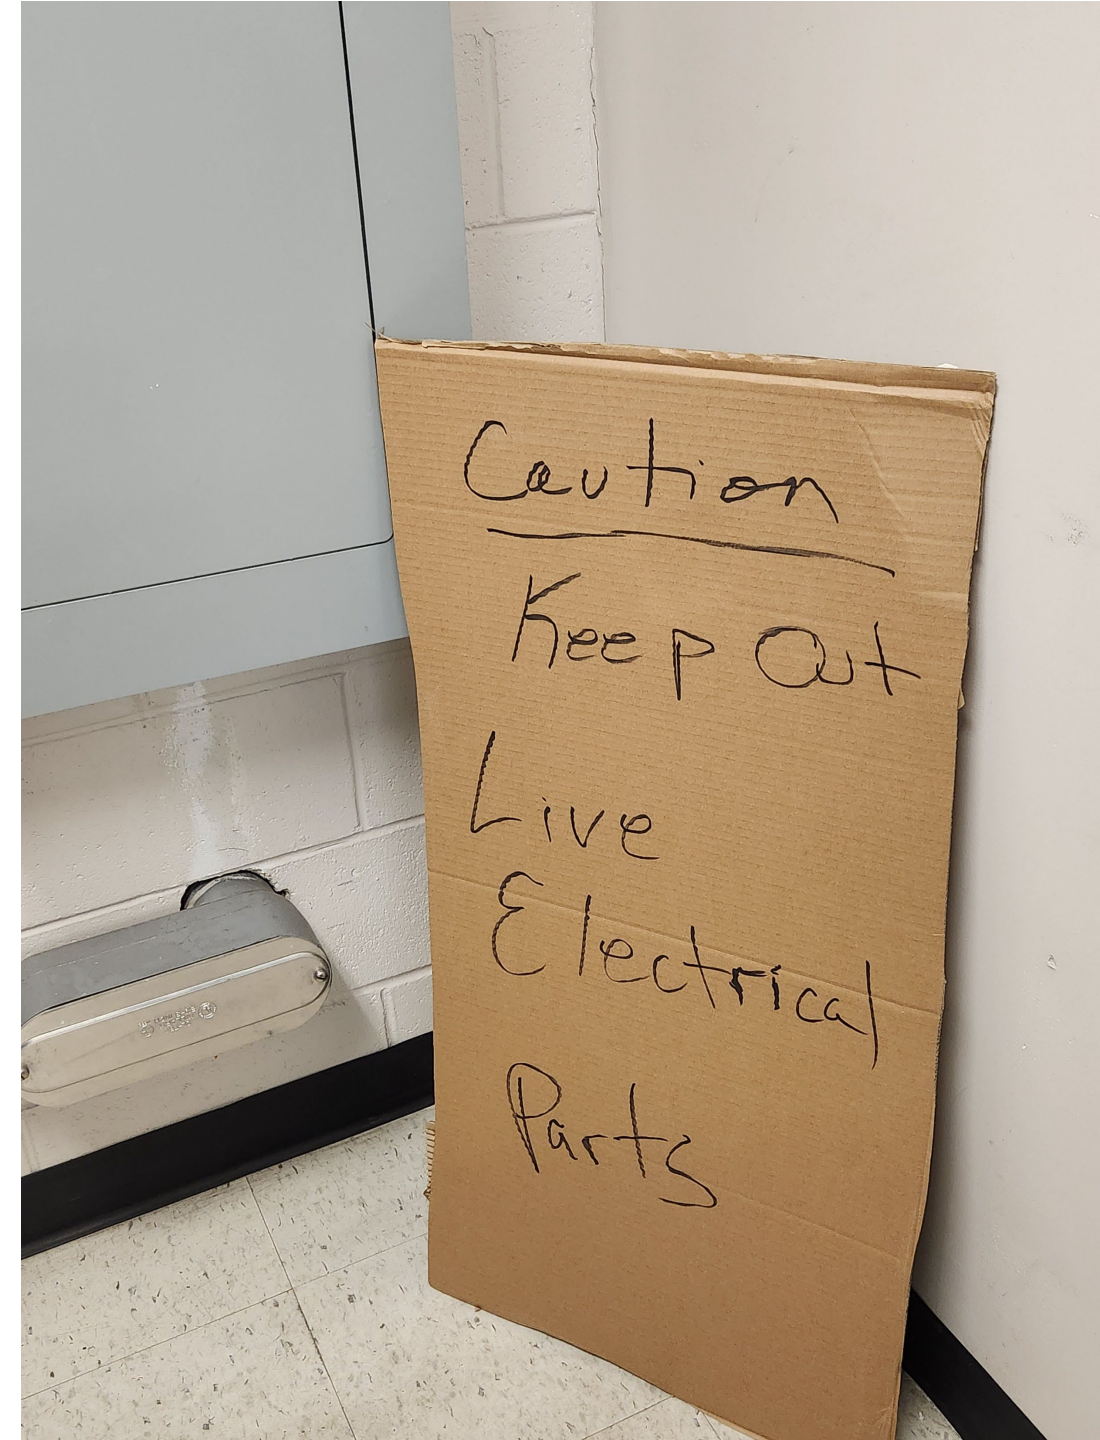 Caution
Keep Out
Live
Electrical
Parts